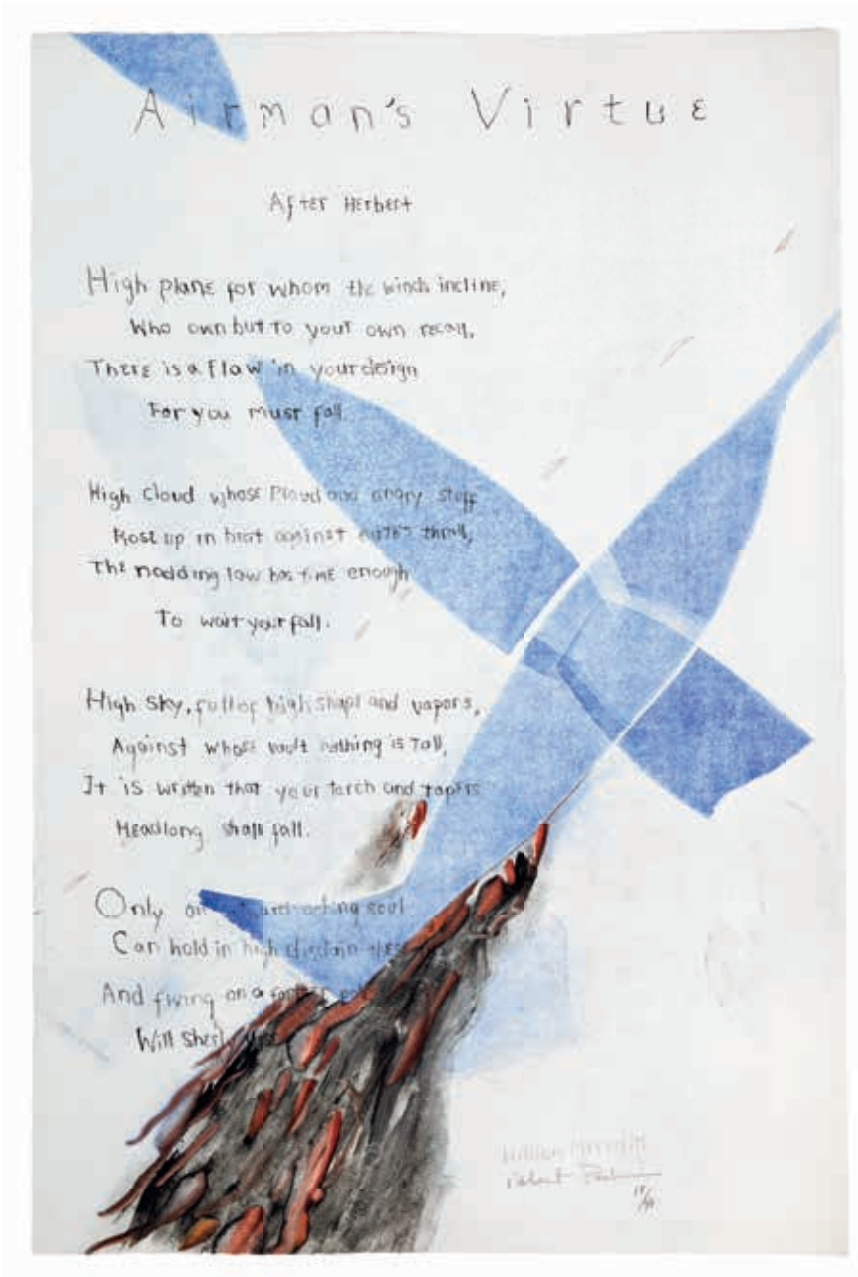 Airman's Virtue
After Herbert
High plane for whom the winds incline,
Who own but to your own recall,
There is a flaw in your design
For you must fall.
High Cloud whose proud and angry stuff
Rose up in heat against earth's thrall,
The nodding law has time enough
To wait your fall.
High Sky, full of high shapes and vapors,
Against whose vault nothing is Tall,
It is written that your torch and tapers
Headlong shall fall.
Only an soul
Can hold in high disdain these
And fixing on a
Will
William Meredith